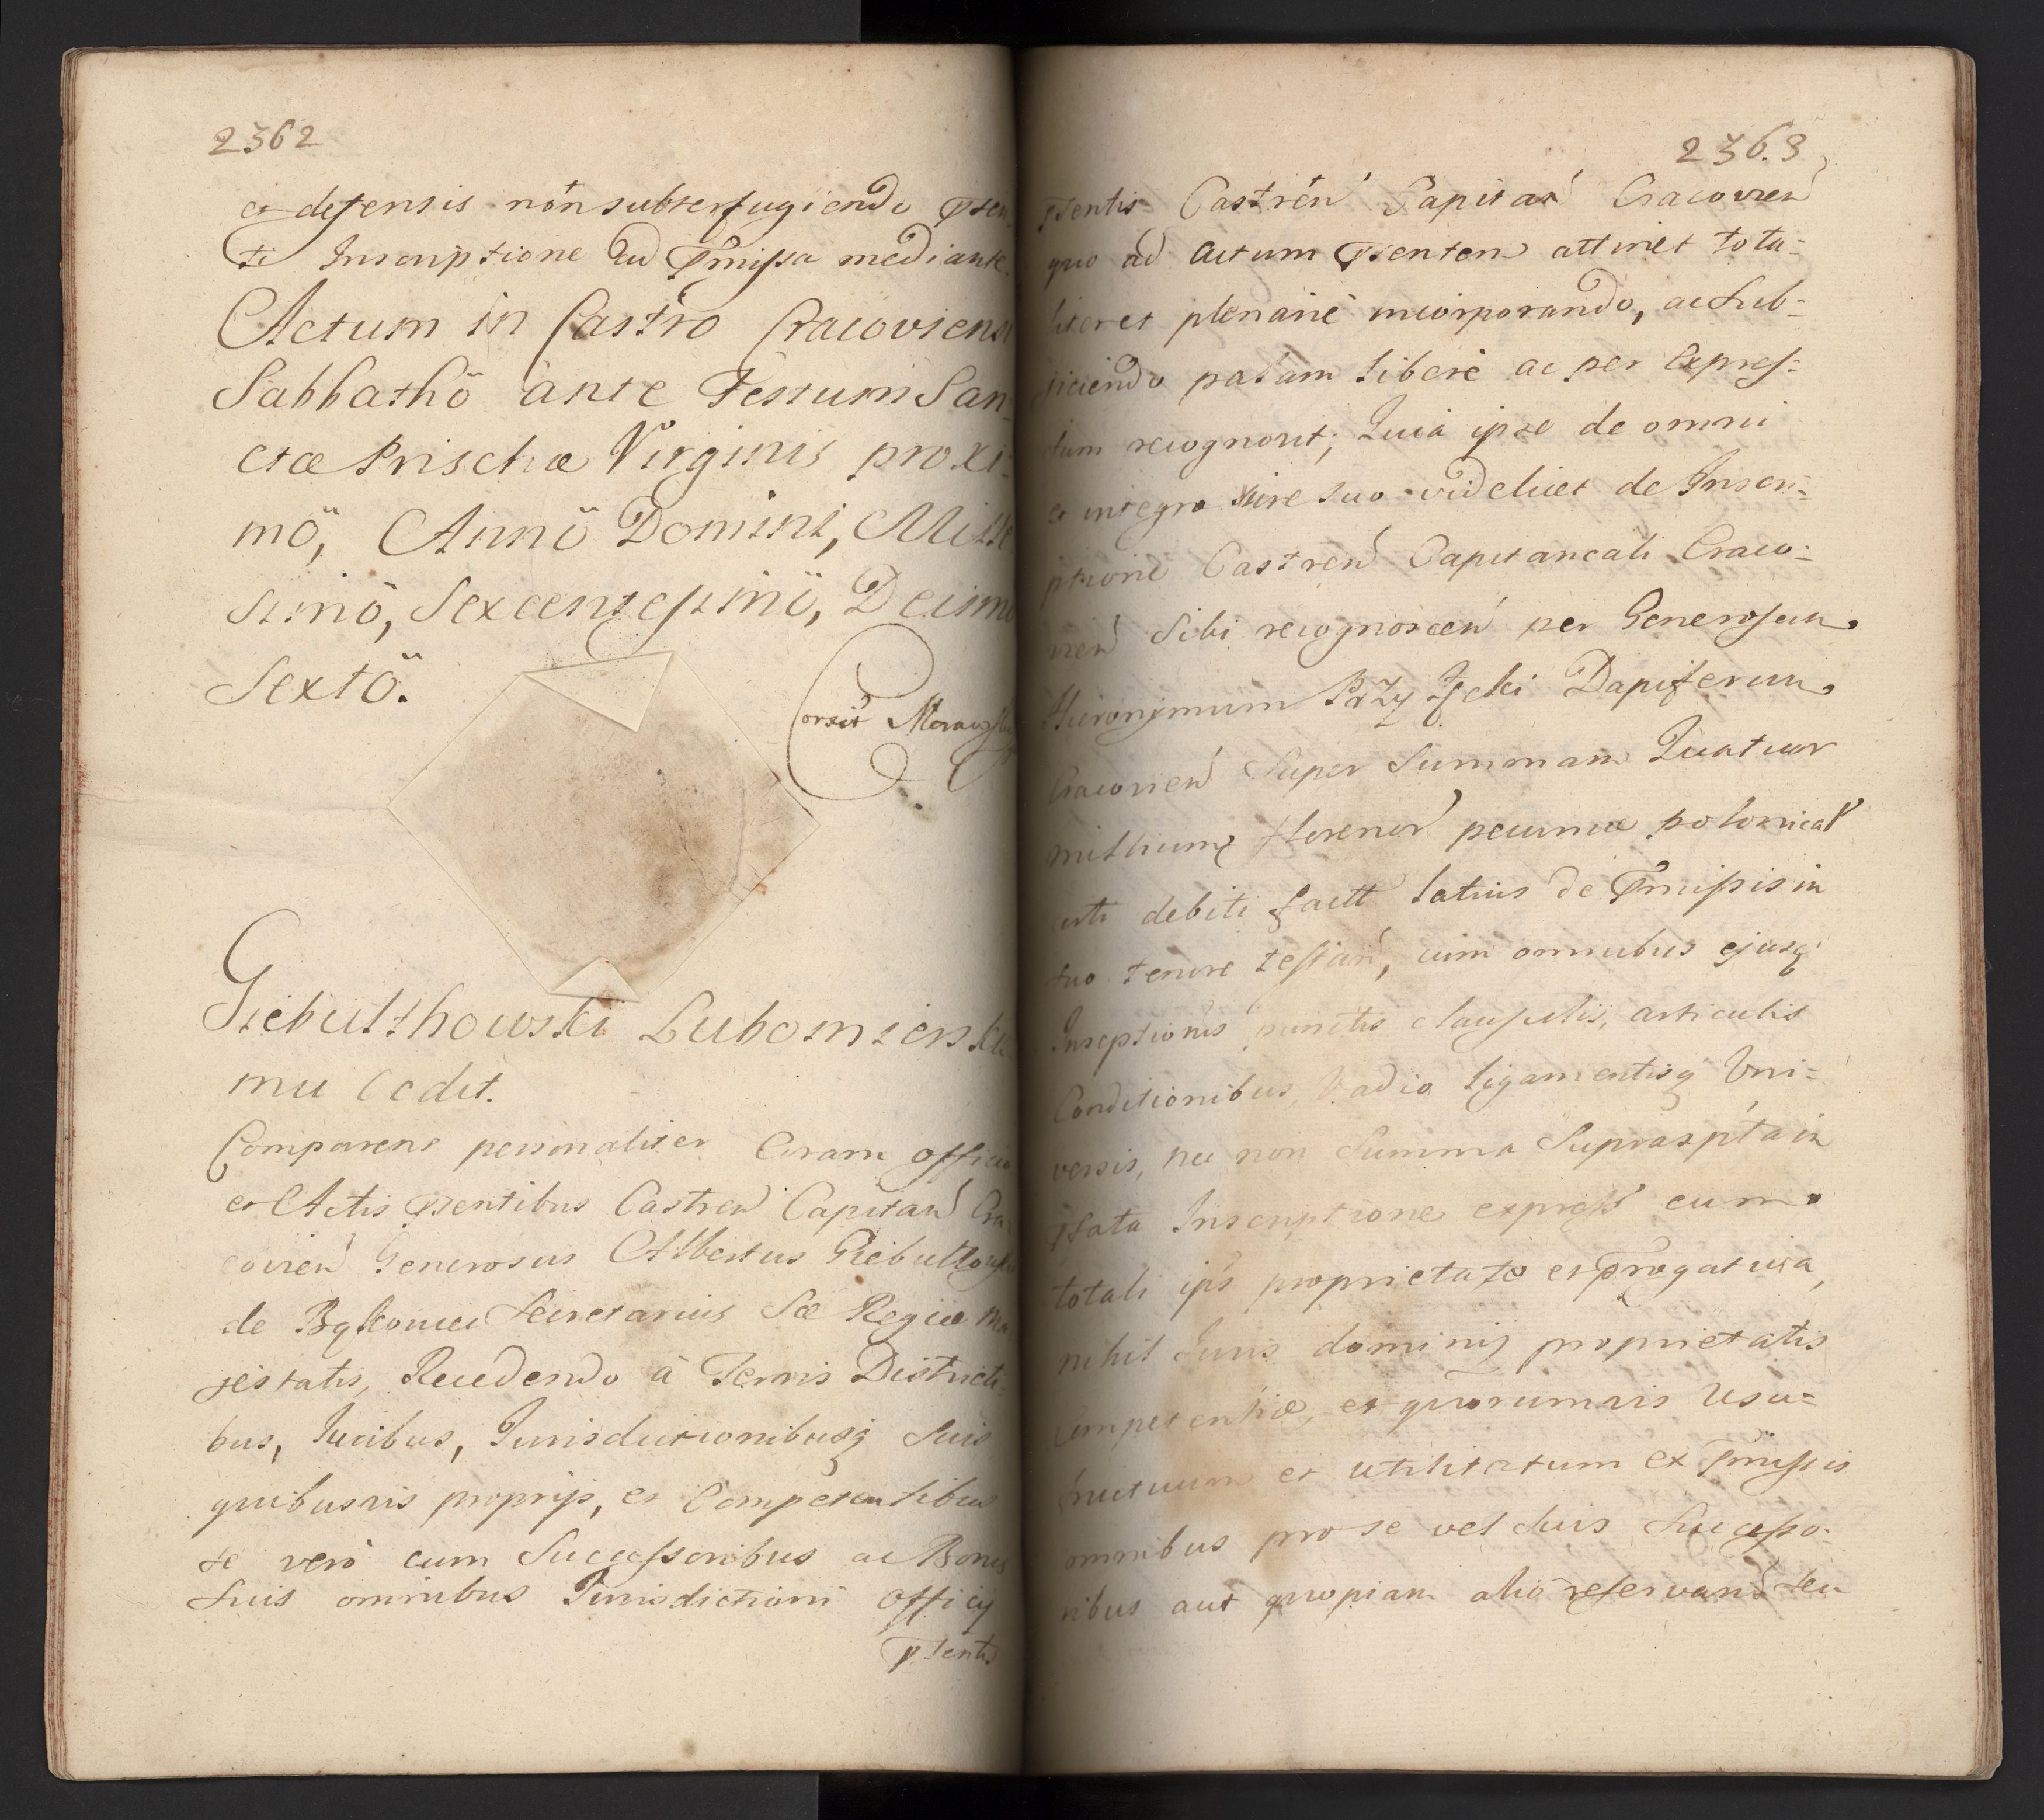 2362
et defensis non subterfugiendo pſen
ti Inscriptione ad pmissa mediante.
Actum in Castro Cracoviensi
Sabbathö ante Festum San-
ctæ Prischæ Virginis proxi-
mö, Annö Domini, Mille
simö, Sexcentesimö, Decimo
Sextö.
Corexit
Giebulthowski Lubomierskie
mu Cedit.
Comparens personaliter Coram officio
et Actis pſentibus Castren Capitan Cra-
covien Generosus Albertus Giebultowski
de Secretarius Sæ Regiæ Ma
jestatis, Recedendo à Terris Districti-
bus, Juribus, Jurisdictionibusq suis
quibusvis proprijs, et Competentibus
se vero cum Successoribus ac Bonis
Suis omnibus Jurisdictioni Officij
pſentis
2363
pſentis Castren Capitan Cracovien
quo ad actum pſentem attinet tota-
liter et plenarie incorporando, ac sub-
jiciendo palam libere ac per expres-
sum recognovit; Quia ipse de omni
et integro Iure suo videlicet de Inscri-
ptione Castren Capitaneali Craco-
vien Sibi recognoscen per Generosum
Hieronymum Dapiferum
Cracovien Super Summam Quatuor
millium florenor pecuniæ polonical
certi debiti fact latius de pmissis in
suo tenore testan, cum omnibus ejusq
Inscptionis punctis clausulis, articulis
Conditionibus, Vadio ligamentisq Uni-
versis, nec non Summa Suprascpta in
pſata Inscriptione express cum
totali ips proprietate et progativa,
nihil Juris dominij proprietatis
Competentiæ, et quorumvis Usu-
fructuum et utilitatum ex pmissis
omnibus pro se vel suis Successo-
ribus aut quopiam alio reservand seu